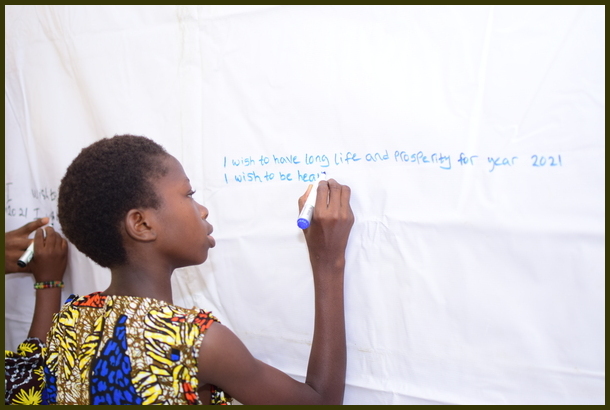 I wish to have long life and prosperity for year 2021
I wish to be hea
2021 I